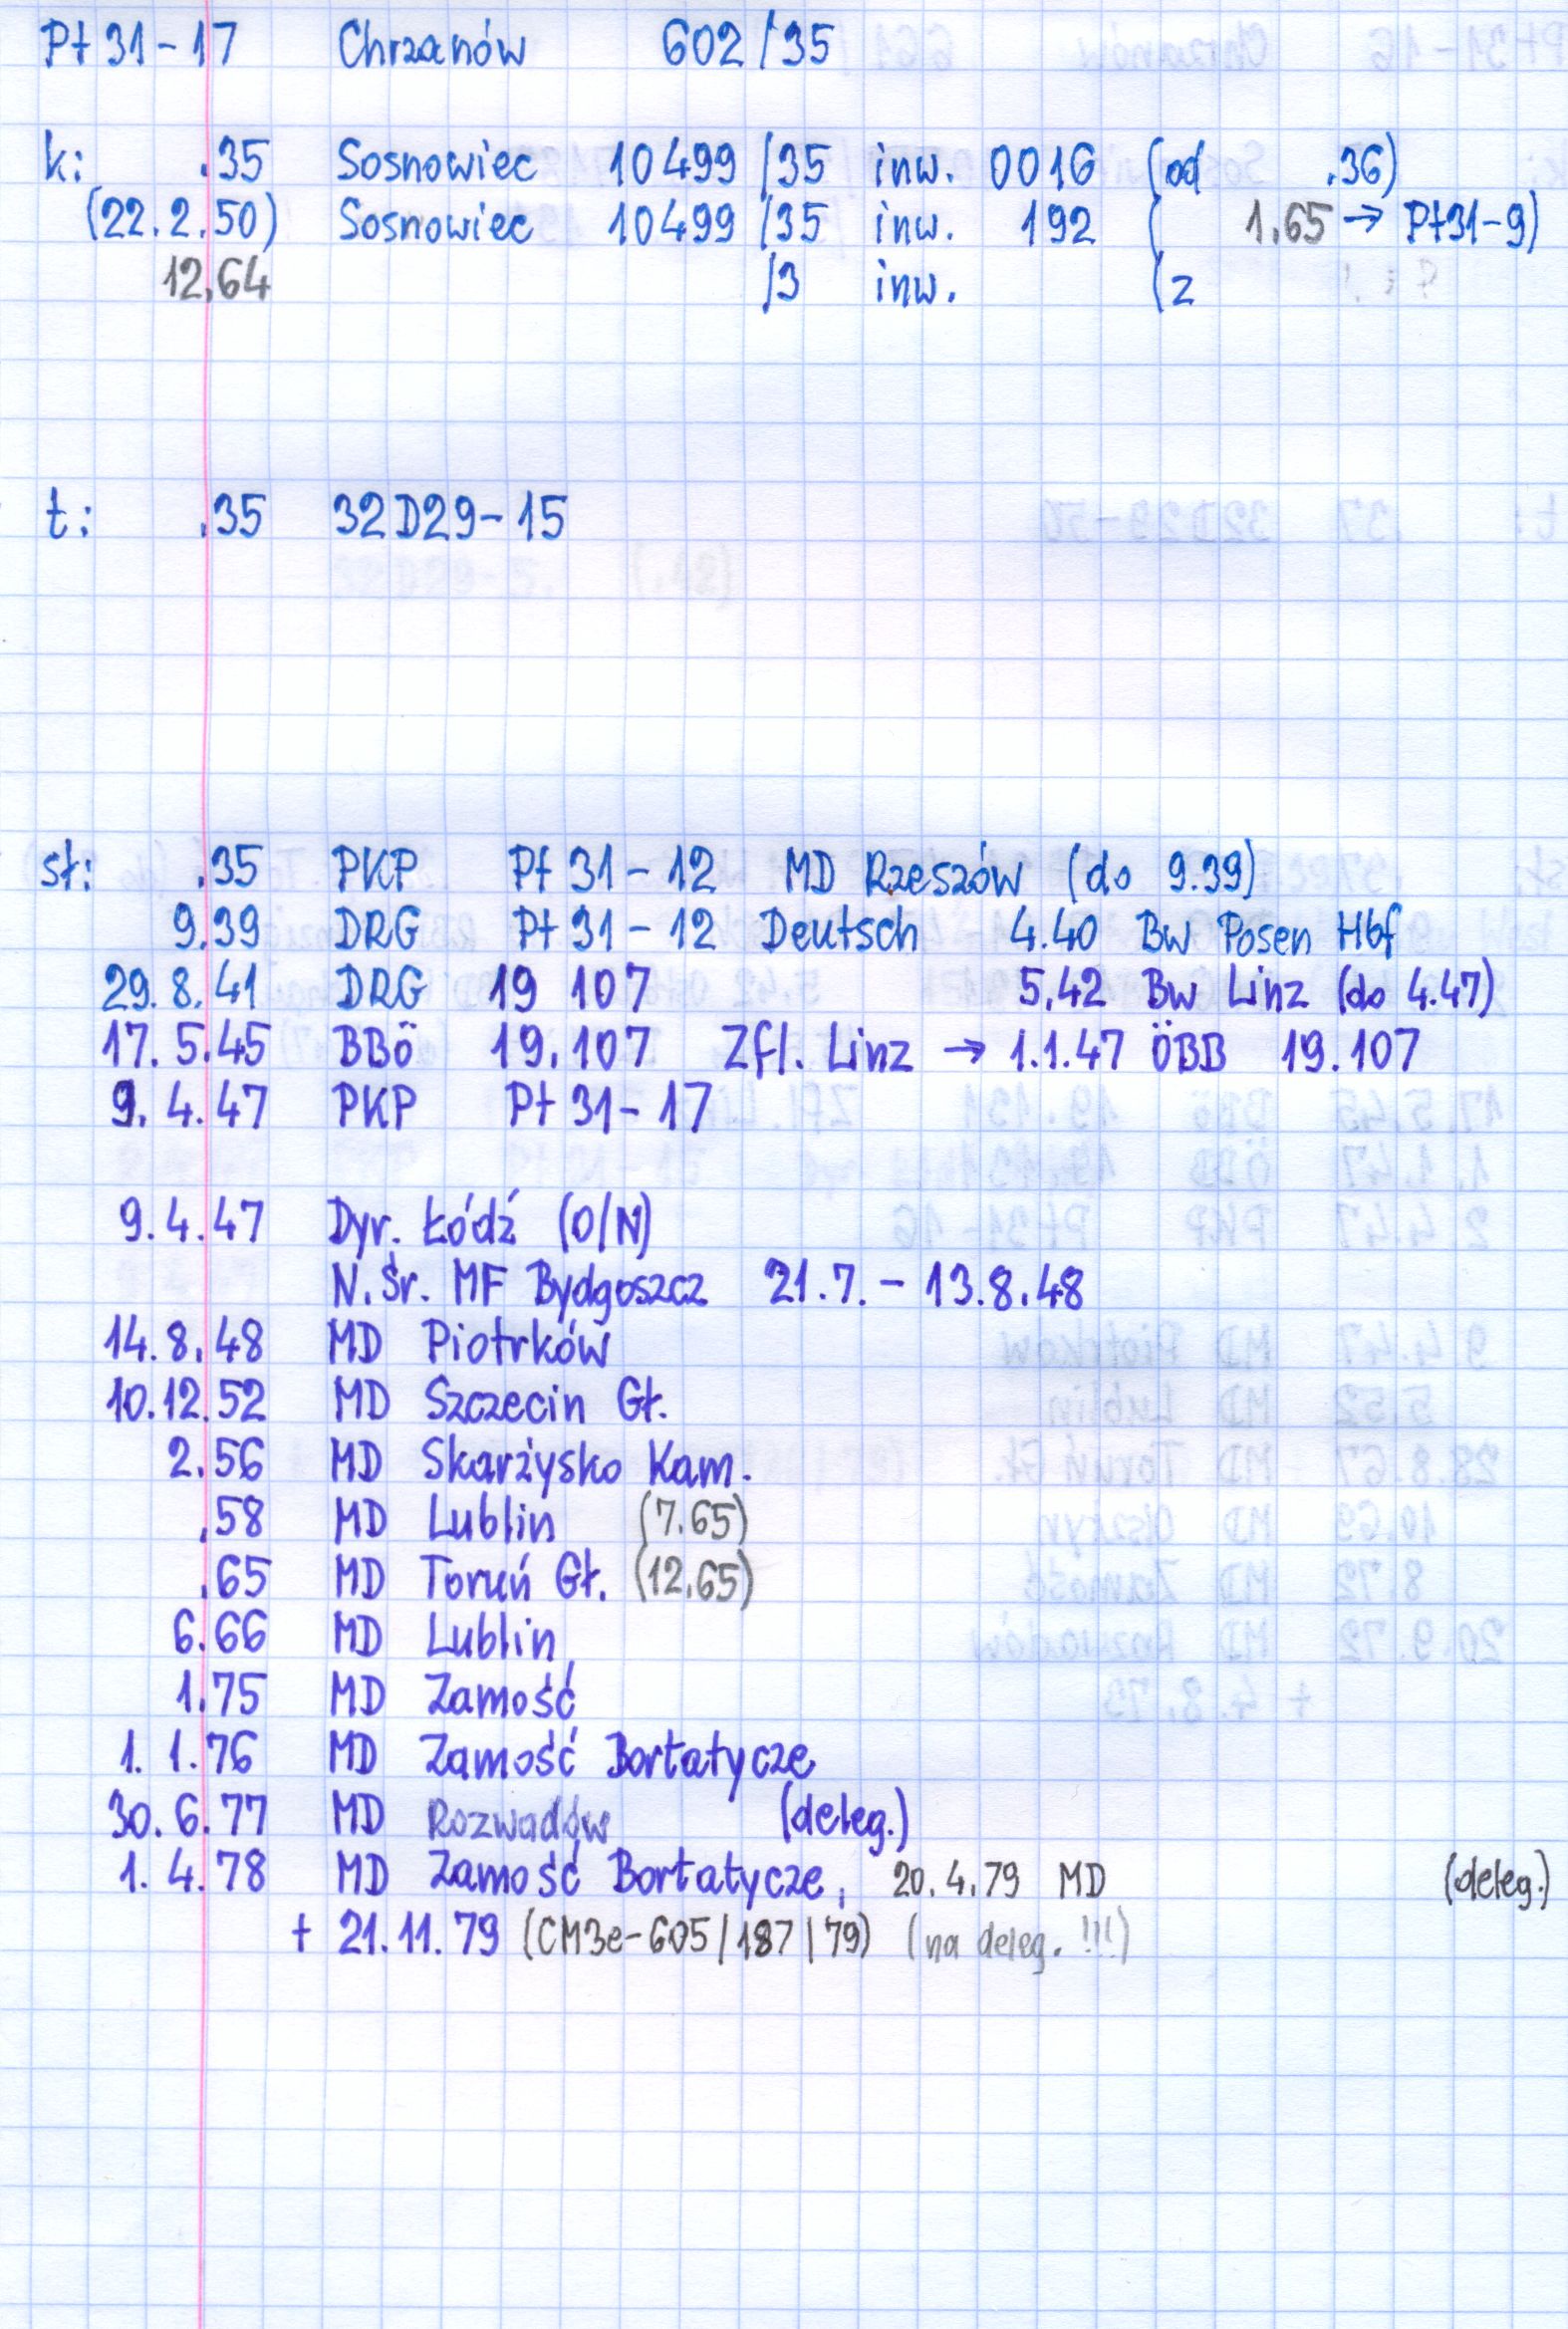 Pt 31-17 Chrzanów 602/35
k: .35 Sosnowiec 10499/35 inw. 0016 (od .36)
(22.2.50) Sosnowiec 10499/35 inw. 192 ( 1.65 → Pt31-9)
12.64 /3 inw. (z
t: .35 32D29-15
sł: .35 PKP Pt 31-12 MD Rzeszów (do 9.39)
9.39 DRG Pt 31-12 Deutsch 4.40 Bw Posen Hbf
29.8.41 DRG 19 107 5.42 Bw Linz (do 4.47)
17.5.45 BBö 19.107 Zfl. Linz → 1.1.47 ÖBB 19.107
9.4.47 PKP Pt 31-17
9.4.47 Dyr. Łódź (O/N)
N.Śr. MF Bydgoszcz 21.7. - 13.8.48
14.8.48 MD Piotrków
10.12.52 MD Szczecin Gł.
2.56 MD Skarżysko Kam.
.58 MD Lublin (7.65)
.65 MD Toruń Gł. (12.65)
6.66 MD Lublin
1.75 MD Zamość
1.1.76 MD Zamość Bortatycze
30.6.77 MD Rozwadów (deleg.)
1.4.78 MD Zamość Bortatycze, 20.4.79 MD (deleg.)
+ 21.11.79 (CM3e-605/187/79) (na deleg. !!!)